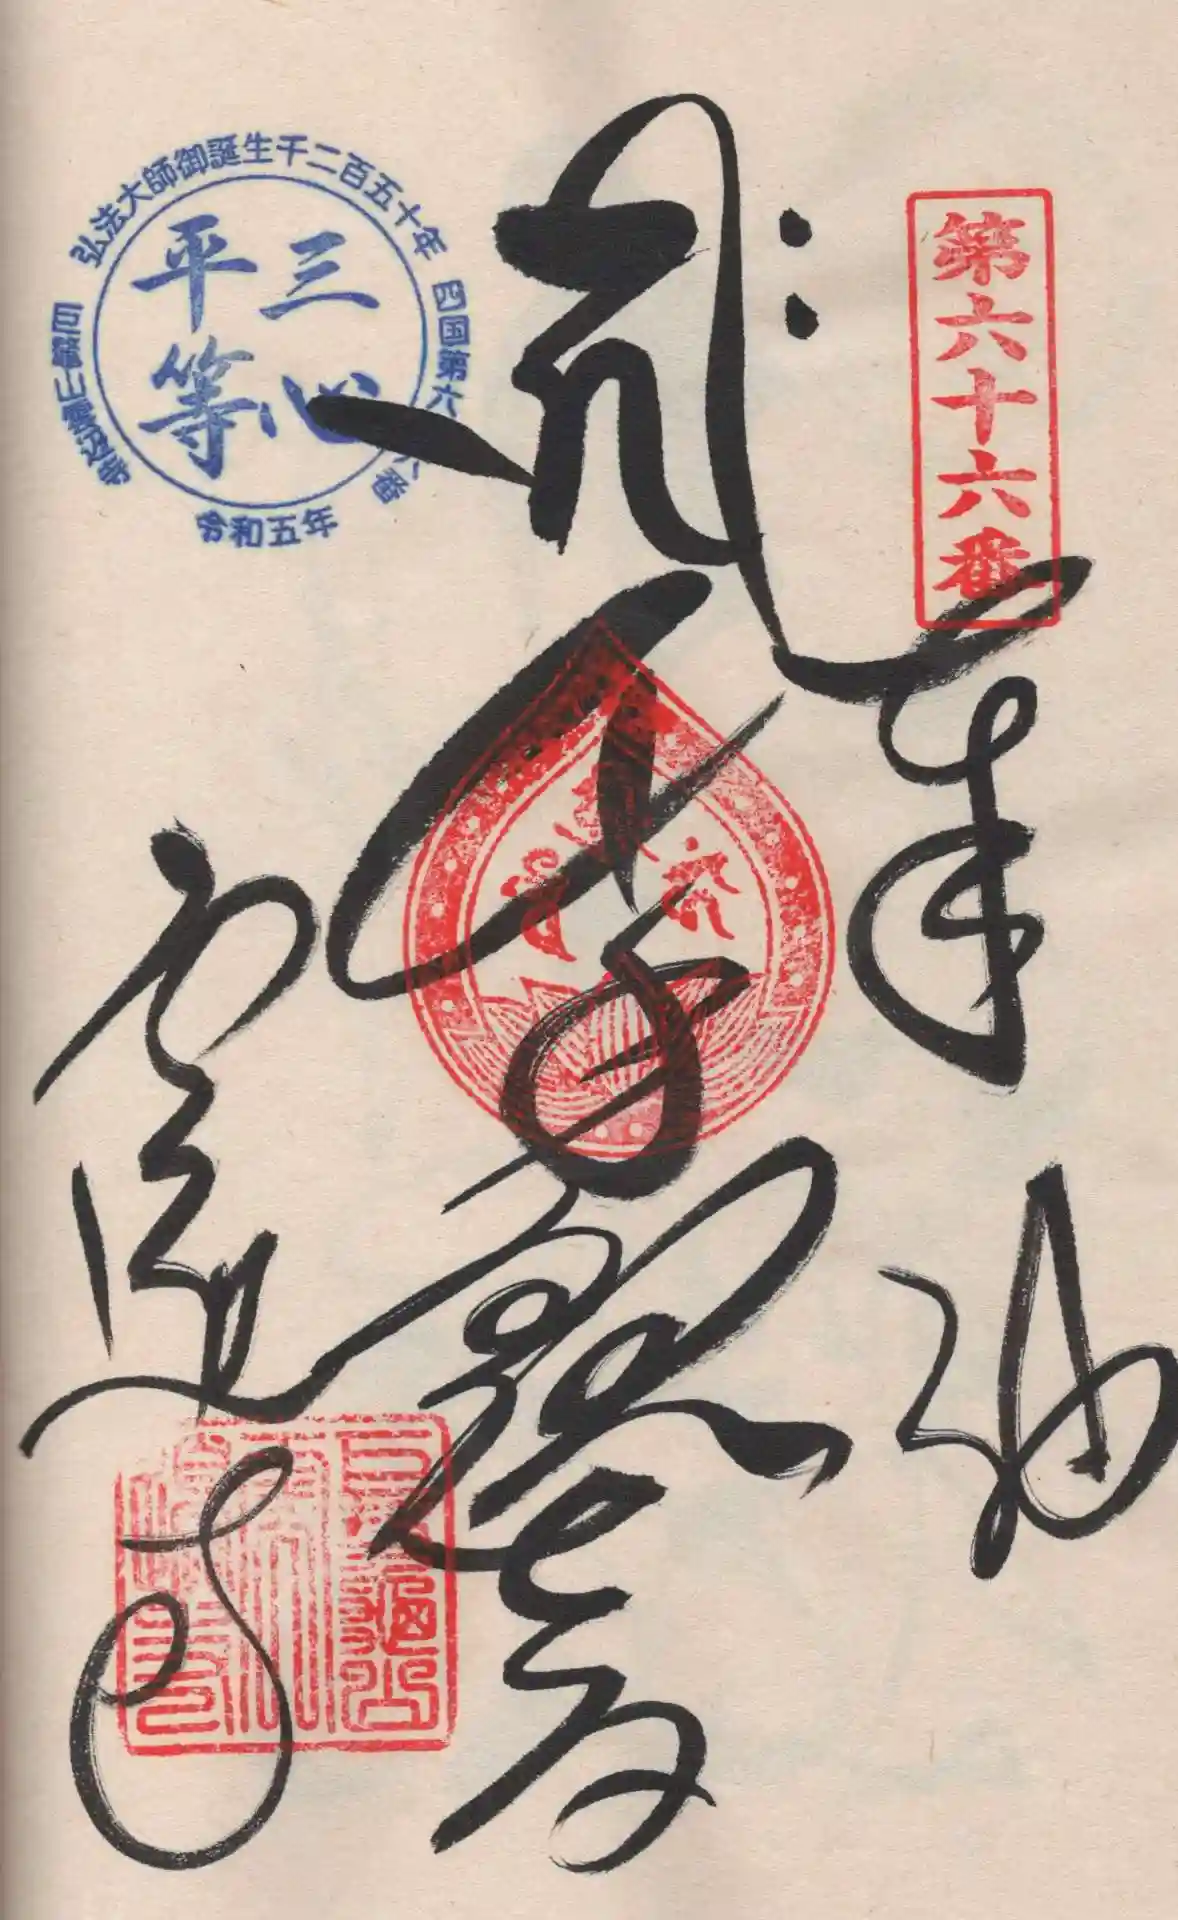 第六十六番
奉納
千手観世音
雲辺寺
弘法大師御誕生千二百五十年
四国第六十六番
三心
平等
令和五年